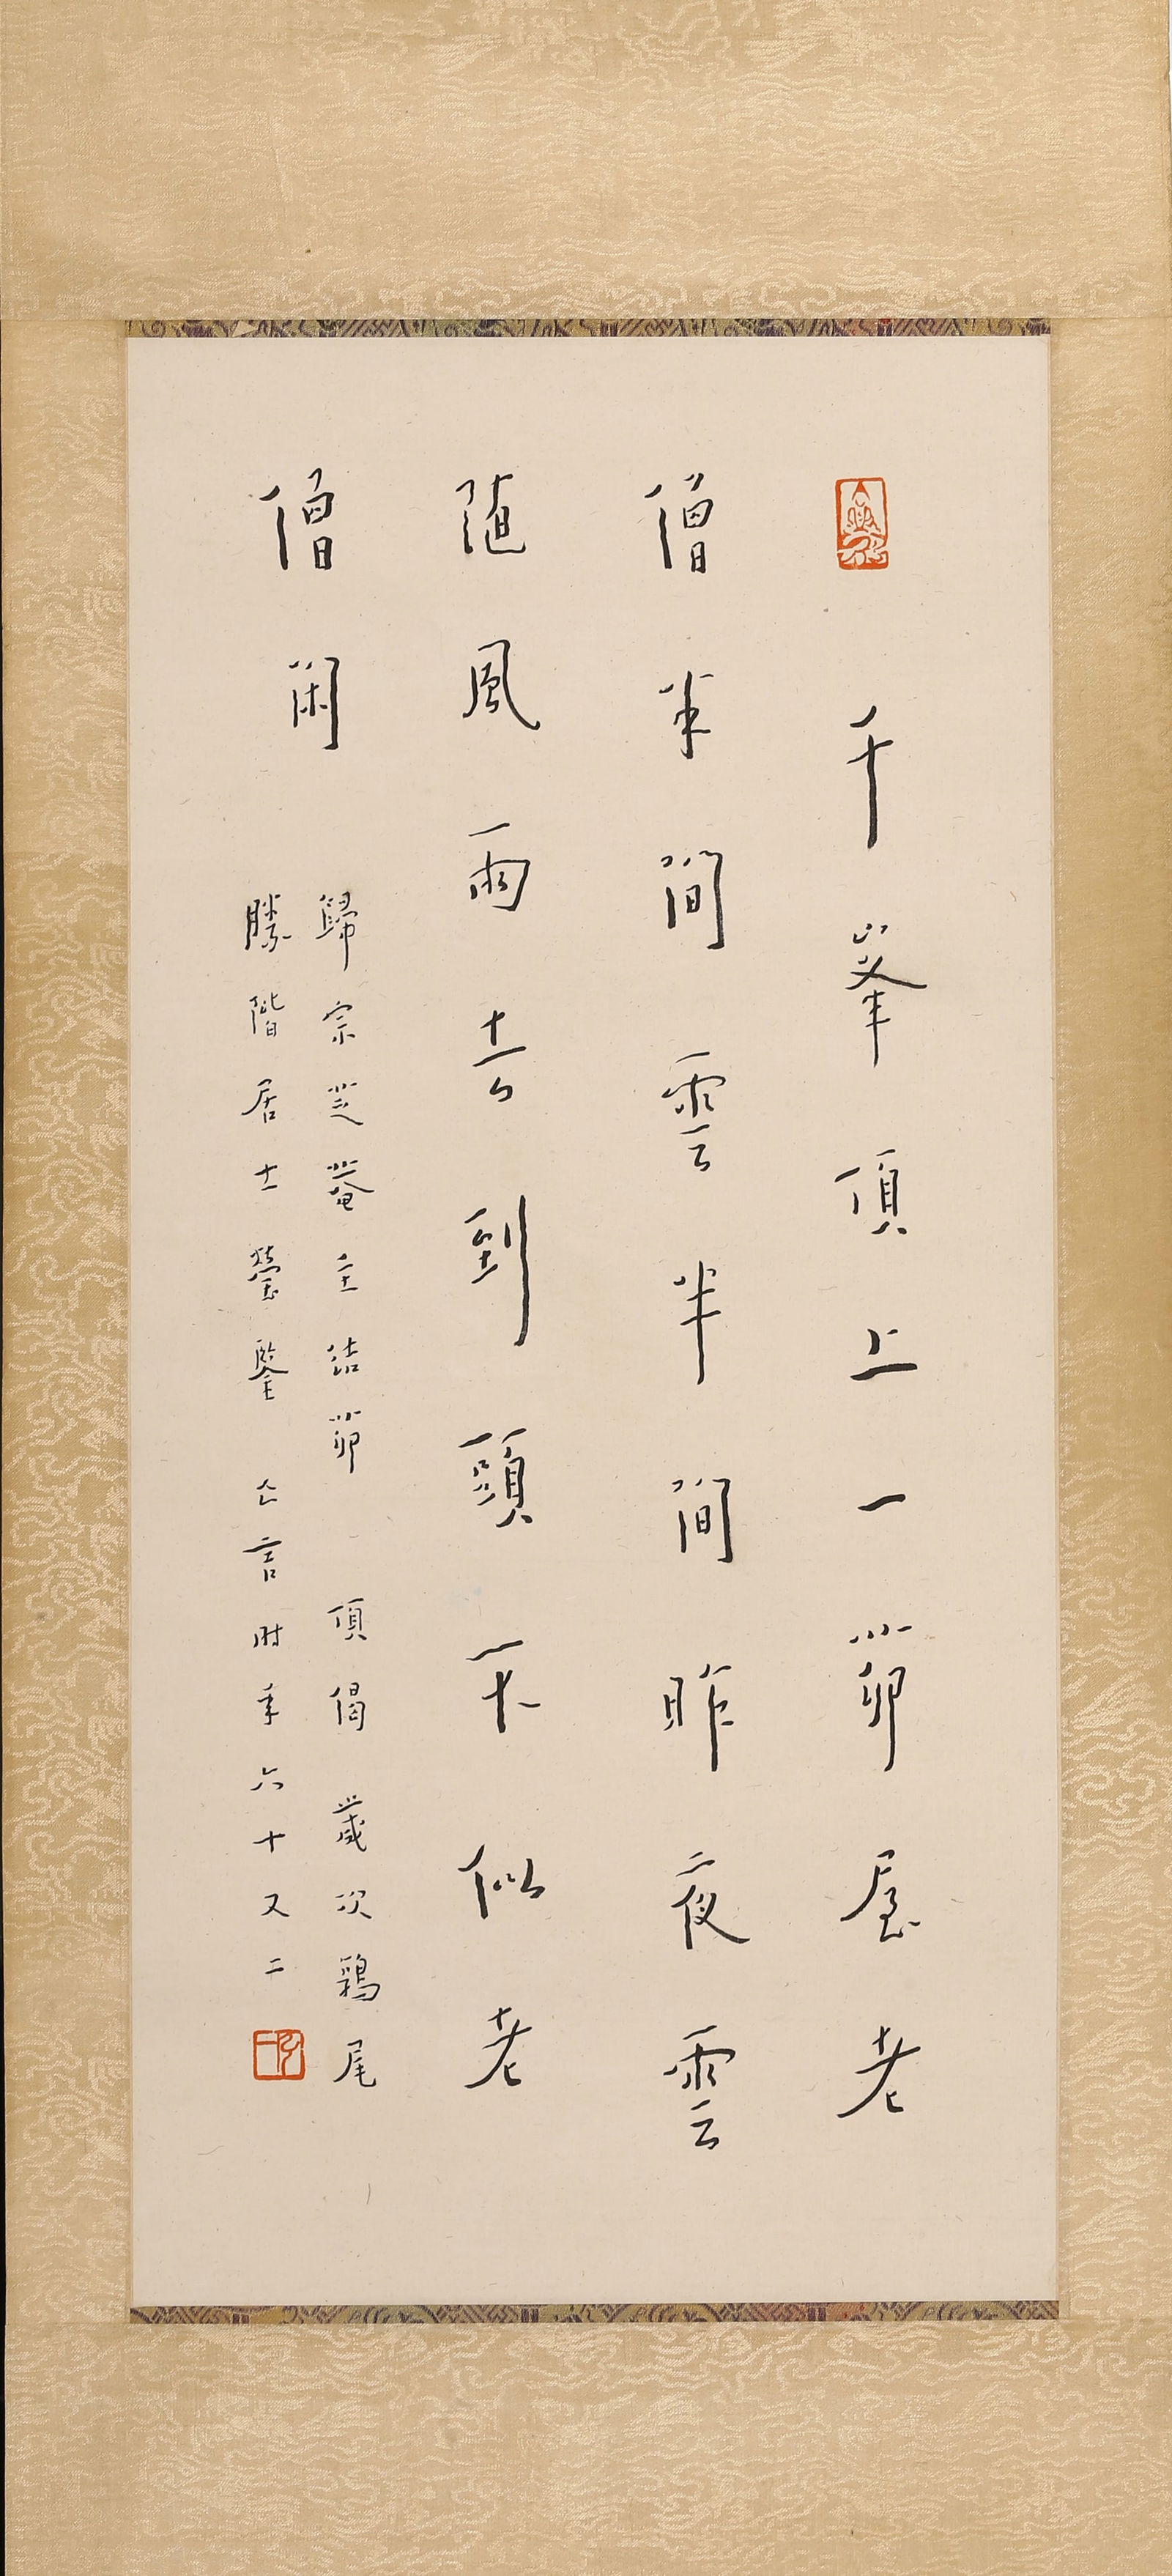 千峯頂上一茆屋老
僧半間雲半間昨夜雲
隨風雨去到頭不似老
僧閑
歸宗芝菴主結茆 頂偈 歲次鶉尾
勝階居士瑩鑒 亡言時年六十又二